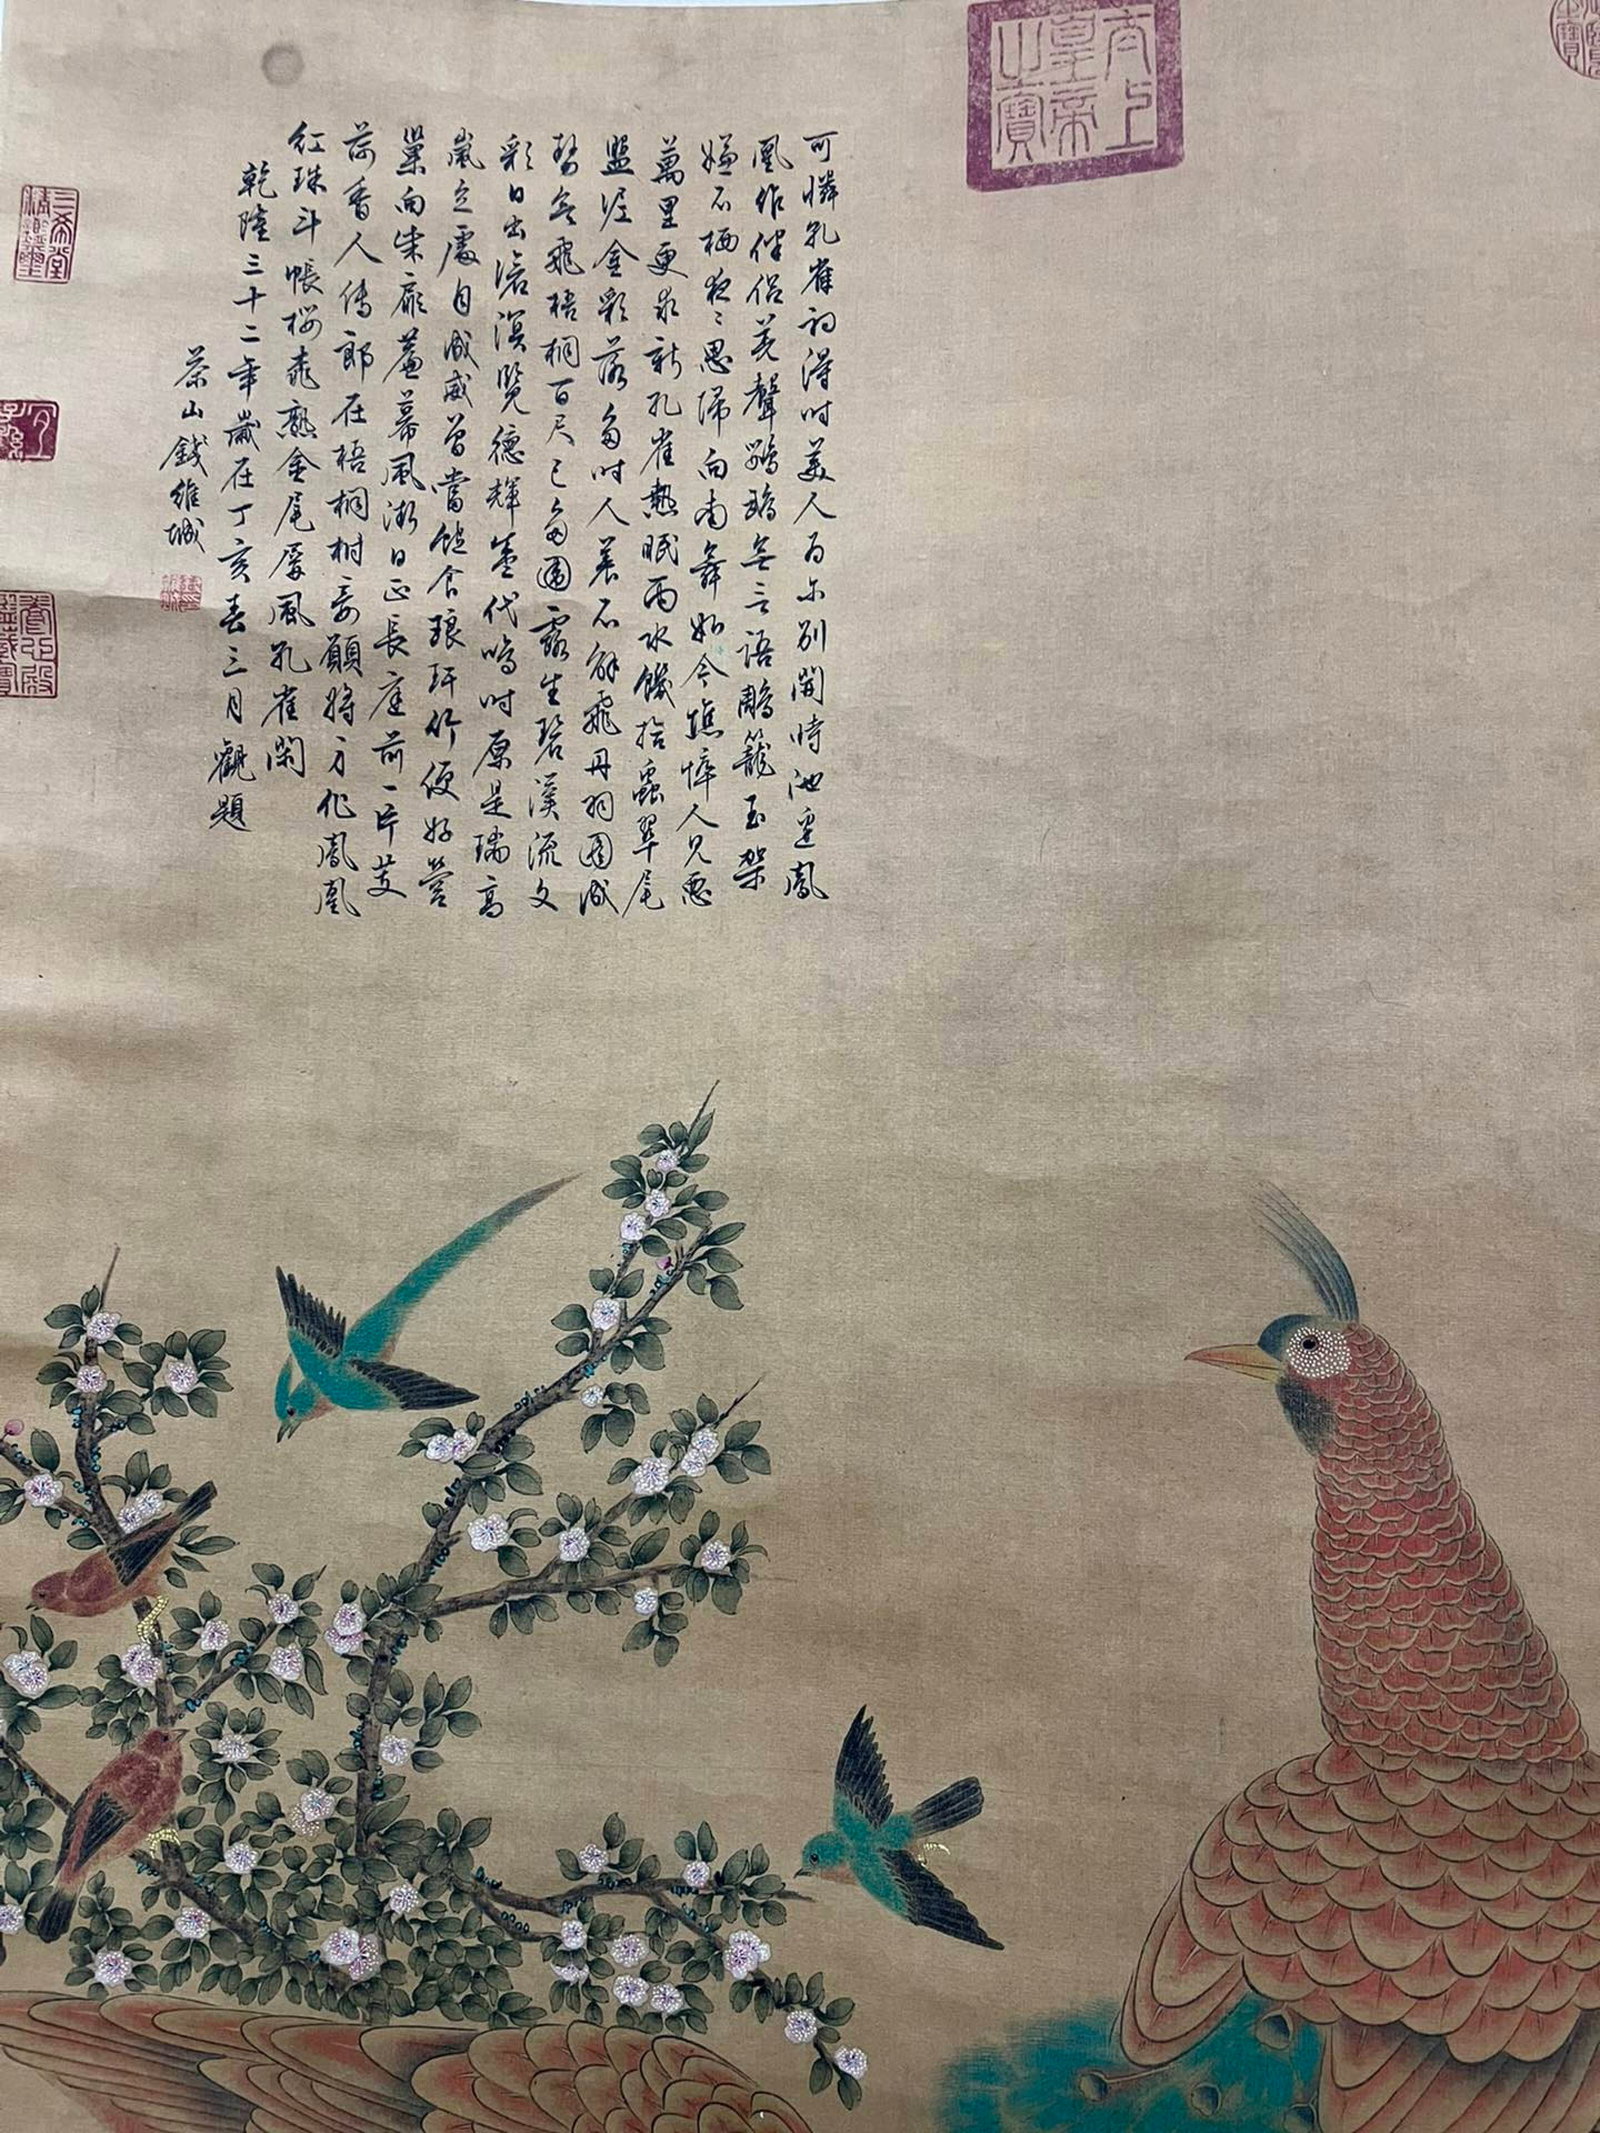 太上皇帝之寶
可憐孔雀初得时美人为尔別開時池邊鳳
凰作伴侶羌聲鸚鵡無言語雕籠玉架
嫌不栖夜〻思歸向南舞如今憔悴人見惡
萬里更求新孔雀熱眠雨水饑拾蟲翠尾
盤泥金彩落多时人養不解飛丹羽圖成
無飛梧桐百尺已多圍露生碧漢流文
彩日出滄溟覽德輝盛代鳴时原是瑞高
嵐立處自成威曾當飽食琅玕竹便好營
巢向朱扉簾幕風微日正長庭前一片芰
荷香人傳郎在梧桐樹妾願將身化鳳凰
紅珠斗帳櫻桃熟金尾屏風孔雀閑
乾隆三十二年歲在丁亥春三月觀題
茶山錢維城
三希堂精鑑璽
養心殿鑑藏寶